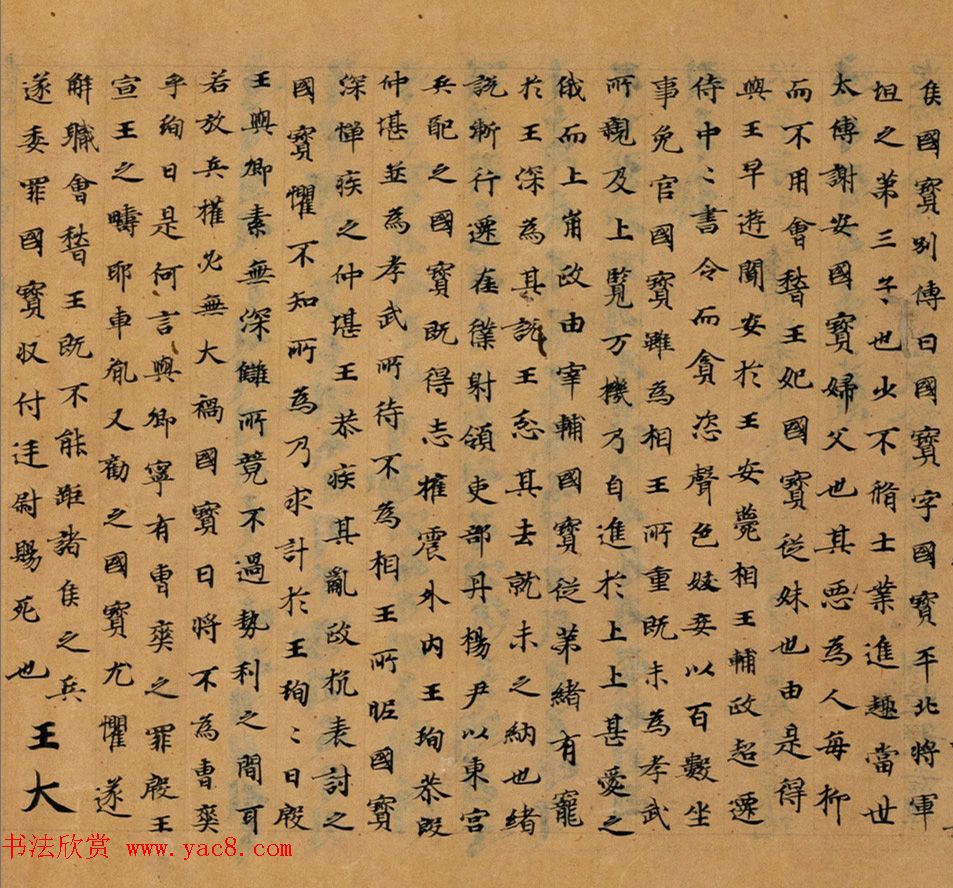 侯國寶別傳曰國寶字國寶平北將軍
坦之第三子也少不脩士業進趣當世
太傅謝安國寶婦父也其惡為人每抑
而不用會稽王妃國寶從妹也由是得
與王早遊間安於王安薨相王輔政超遷
侍中〻書令而貪恣聲色妓妾以百數坐
事免官國寶雖為相王所重既未為孝武
所親及上覽万機乃自進於上上甚愛之
俄而上崩政由宰輔國寶從弟緒有寵
於王深為其說王忿其去就未之納也緒
說漸行遷左僕射領吏部丹楊尹以東宮
兵配之國寶既得志權震外內王珣恭殷
仲堪並為孝武所待不為相王所昵國寶
深憚疾之仲堪王恭疾其亂政抗表討之
國寶懼不知所為乃求計於王珣〻曰殷
王與卿素無深讎所競不過勢利之間耳
若放兵權必無大禍國寶曰將不為曹爽
乎珣曰是何言與卿寧有曹爽之罪殷王
宣王之疇耶車胤又勸之國寶尤懼遂
解職會稽王既不能距諸侯之兵
遂委罪國寶収付廷尉賜死也 王大
书法欣赏 www.yac8.com